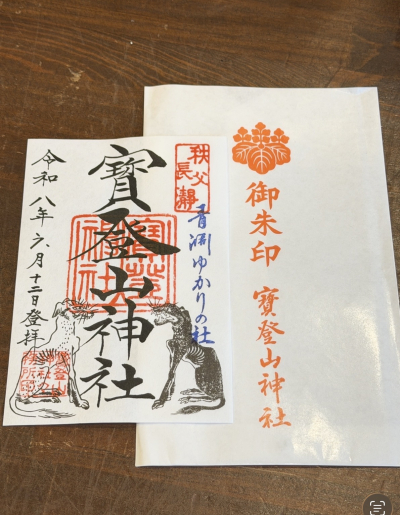 秩父
長瀞
青淵ゆかりの社
寳登山神社
令和八年六月十二日登拝
御朱印
寳登山神社